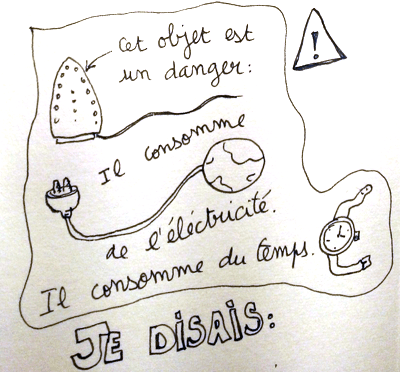 Cet objet est
un danger:
!
Il consomme
de l'éléctricité.
Il consomme du temps.
JE DISAIS: